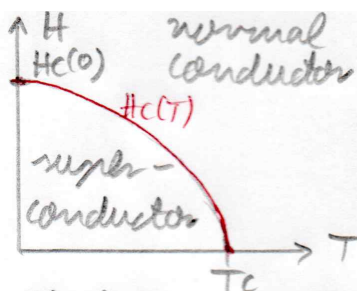 H normal
Hc(0) conductor
Hc(T)
super-
conductor
T
Tc